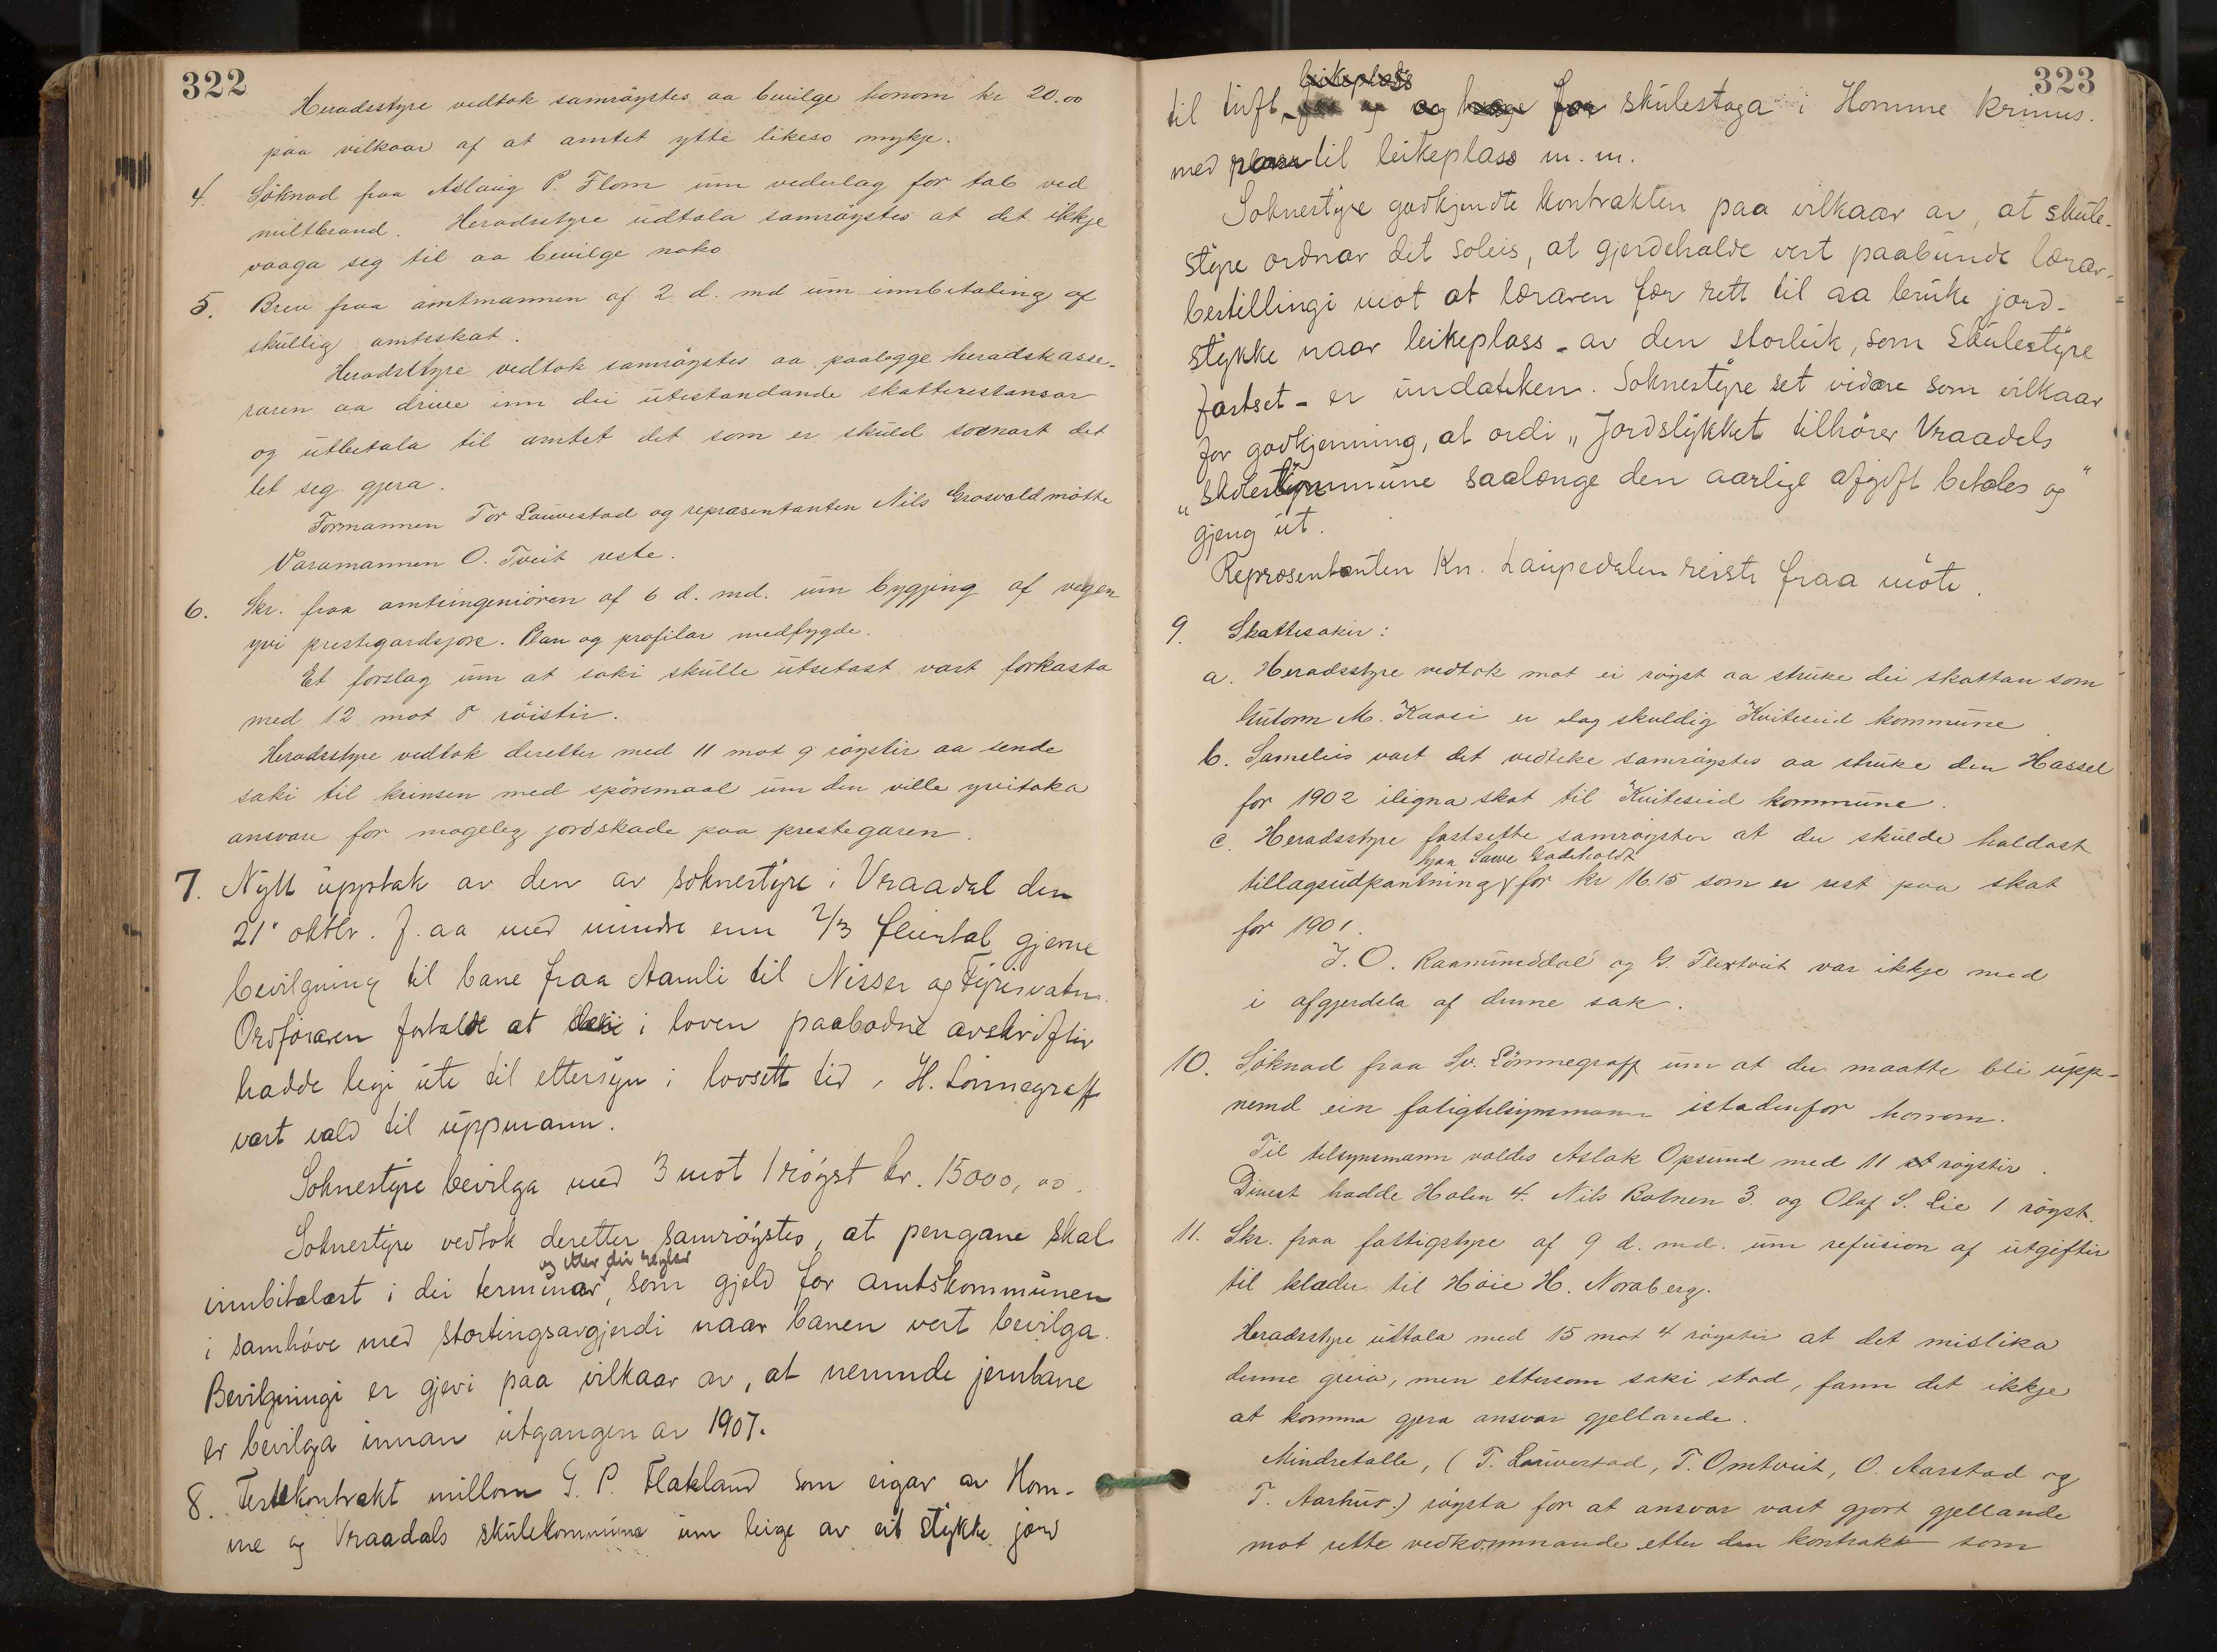 322
Heradsstyre vedtok samrøystes aa bevilge honom kr 20.00
paa vilkaar af at amtet ytte likeso mykje.
4. Søknad fraa Aslaug P. Flom um vederlag for tab ved
miltbrand. Heradsstyre udtala samrøystes at det ikkje
vaaga seg til aa bevilge noko
5. Brev fraa amtmannen af 2 d. md um innbetaling af
skullig amtsskat.
Heradsstyre vedtok samrøystes aa paalegge heradskasse-
raren aa drive inn dei utestandande skatterestansar
og utbetala til amtet det som er skuld so snart det
let seg gjera.
Formannen Tor Lauvestad og repræsentanten Nils Grosvold møtte
Varamannen O. Tveit reste.
6. Skr. fraa amtsingeniøren af 6 d. md. um bygging af vegen
yvi prestegardsjore. Plan og profilar medfygde.
Et forslag um at saki skulle utsetast vart forkasta
med 12 mot 8 røistir.
Heradsstyre vedtok deretter med 11 mot 9 røystir aa sende
saki til krinsen med spørsmaal um den ville yvitaka
ansvare for mogeleg jordskade paa prestegaren.
7. Nytt upptak av den av soknestyre i Vraadal den
21' oktbr. f. aa med mindre enn 2/3 fleirtal gjevne
bevilgning til bane fraa Aamli til Nisser og Fyrisvatn.
Ordføraren fortalde at i loven paabodne avskriftir
hadde legi ute til ettersyn i lovsett tid. H. Lønnegraff
vart vald til uppmann.
Soknestyre bevilga med 3 mot 1 røyst kr. 15000,00.
Soknestyre vedtok deretter samrøystes, at pengane skal
og etter dei reglar
innbitalast i dei terminar, som gjeld for amtskommunen
i samhøve med stortingsavgjerdi naar banen vert bevilga.
Bevilgningi er gjevi paa vilkaar av, at nemnde jernbane
er bevilga innan utgangen av 1907.
8. Festekontrakt millom G. P. Flakland som eigar av Hom-
me og Vraadals skulekommune um leige av eit stykke jord
323
leikeplass
til tuft, og hage for skulestoga i Homme krinus.
med til leikeplass m. m.
Soknestyre godkjendte kontrakten paa vilkaar av, at skule-
styre ordnar det soleis, at gjerdehalde vert paabunde lærar-
bestillingi mot at læraren fær rett til aa bruke jord-
stykke naar leikeplass - av den storleik, som skulestyre
fastset - er undateken. Soknestyre set vidare som vilkaar
for godkjenning, at ordi „Jordstykket tilhører Vraadals
„skolekommune saalænge den aarlige afgift betales og"
gjeng ut.
Repræsentanten Kn. Laupedalen reiste fraa møte.
9. Skattesakir:
a. Heradsstyre vedtok mot ei røyst aa struke dei skattan som
Gutorm M. Kaasi er dag skuldig Kviteseid kommune
b. Sameleis vart det vedteke samrøystes aa struke den Hassel
for 1902 iligna skat til Kviteseid kommune.
c. Heradsstyre fastsette samrøyster at der skulde haldast
hjaa Sauve Gadeholdt
tillagsudpantning for kr 16.15 som er rest paa skat
for 1901.
J. O. Raamunddal og G. Flextveit var ikkje med
i afgjerdela af denne sak.
10. Søknad fraa Sv. Lønnegraff um at der maatte bli upp-
nemd ein fatigtilsynsmann istadenfor honom.
Til tilsynsmann valdes Aslak Opsund med 11 røystir.
Dinest hadde Halvn 4. Nils Botnen 3. og Olaf S. Lie 1 røyst.
11. Skr. fraa fattigstyre af 9 d. md. um refusion af utgiftir
til klæder til Høie H. Noraberg.
Heradsstyre uttala med 15 mot 4 røystir at det mislika
denne greia, men ettersom saki stod, fann det ikkje
at komma gjera ansvar gjellande.
Mindretalle, (T. Lauvestad, T. Omtveit, O. Aarstad og
T. Aarhus.) røysta for at ansvar vart gjort gjellande
mot rette vedkommande etter den kontrakt som